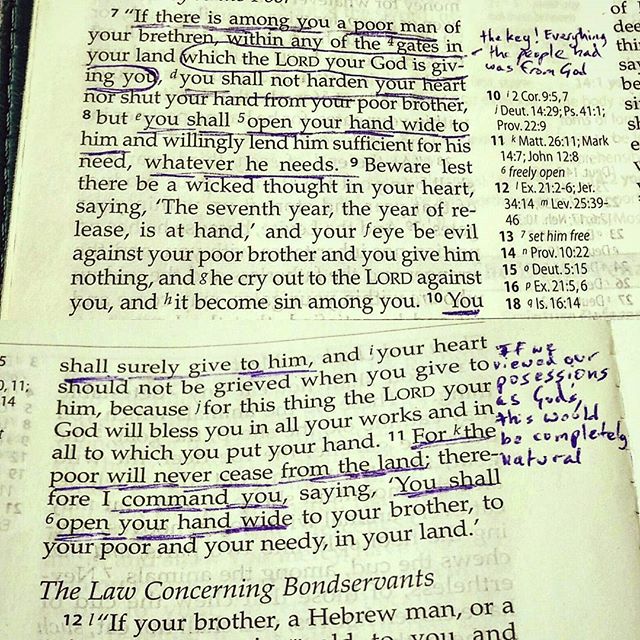 7 "If there is among you a poor man of
your brethren, within any of the ⁴gates in
your land which the LORD your God is giv-
ing you, ᵈyou shall not harden your heart
nor shut your hand from your poor brother,
8 but ᵉyou shall ⁵open your hand wide to
him and willingly lend him sufficient for his
need, whatever he needs. 9 Beware lest
there be a wicked thought in your heart,
saying, 'The seventh year, the year of re-
lease, is at hand,' and your ᶠeye be evil
against your poor brother and you give him
nothing, and ᵍhe cry out to the LORD against
you, and ʰit become sin among you. 10 You
the key! Everything
the people had
was from God
10 ⁱ2 Cor. 9:5,7
ʲDeut. 14:29; Ps. 41:1;
Prov. 22:9
11 ᵏMatt. 26:11; Mark
14:7; John 12:8
⁶freely open
12 ˡEx. 21:2-6; Jer.
34:14 ᵐLev. 25:39-
46
13 ⁷set him free
14 ⁿProv. 10:22
15 ᵒDeut. 5:15
16 ᵖEx. 21:5,6
18 ᑫIs. 16:14
shall surely give to him, and ⁱyour heart
should not be grieved when you give to
him, because ʲfor this thing the LORD your
God will bless you in all your works and in
all to which you put your hand. 11 For ᵏthe
poor will never cease from the land; there-
fore I command you, saying, 'You shall
⁶open your hand wide to your brother, to
your poor and your needy, in your land.'
If we
viewed our
posessions
as Gods,
this would
be completely
Natural
The Law Concerning Bondservants
12 ˡ"If your brother, a Hebrew man, or a